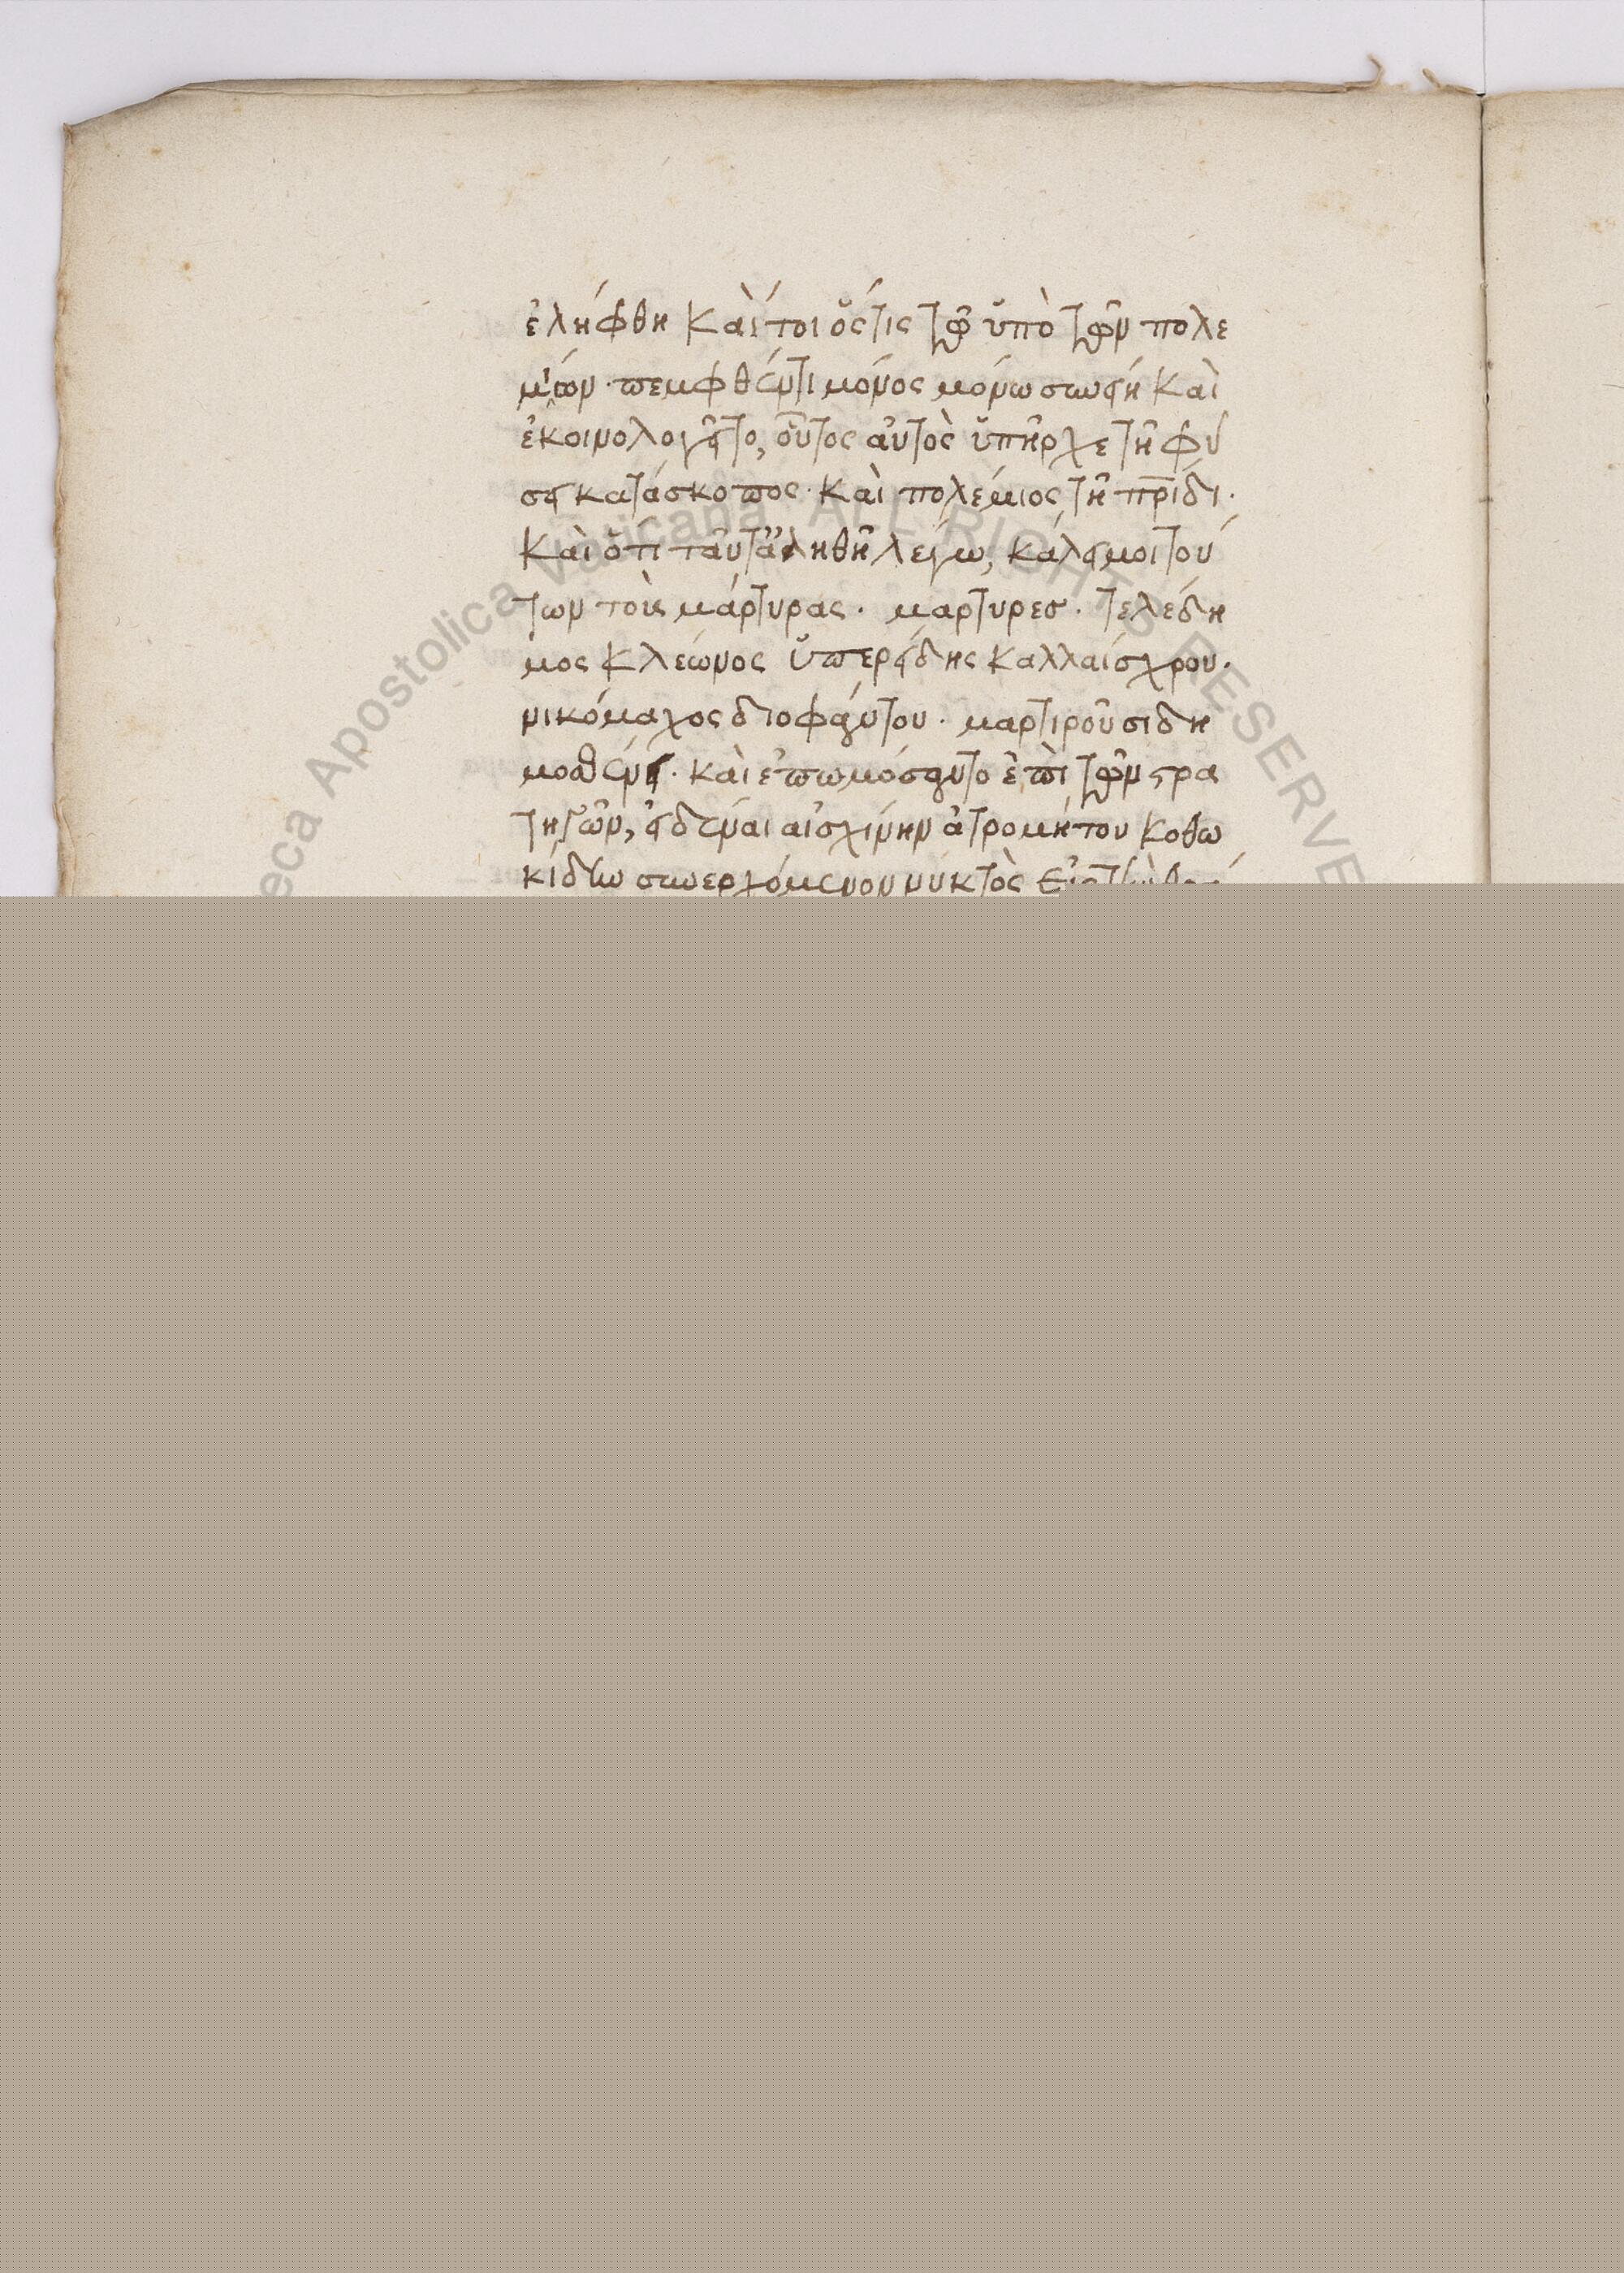 ἐλήφθη Καὶ τοι ὅστις τῶ ὑπὸ τῶν πολε
μίων · πεμφθέντι μόνος μόνω συνήει Καὶ
ἐκοινολογεῖτο, οὗτος αὐτὸς ὑπῆρχε τῆ φύ
σει κατάσκοπος · Καὶ πολέμιος τῆ πρίδι ·
Καὶ ὅτι ταῦτα ἀληθῆ λέγω, κάλει μοι τού
των τοὺς μάρτυρας · μαρτυρεσ · τελέδη
μος Κλέωνος ὑπερείδης Καλλαίσχρου ·
νικόμαχος διοφάντου · μαρτιροῦσι δη
μοσθένει · καὶ ἐπωμόσαντο ἐπὶ τῶν στρα
τηγῶν, εἰδέναι αἰσχίνην ἀτρομήτου Κοθω
κίδην συνερχόμενον νυκτὸς Εἰς τὴν
eca Apostolica Vaticana ALL RIGHTS RESERVE